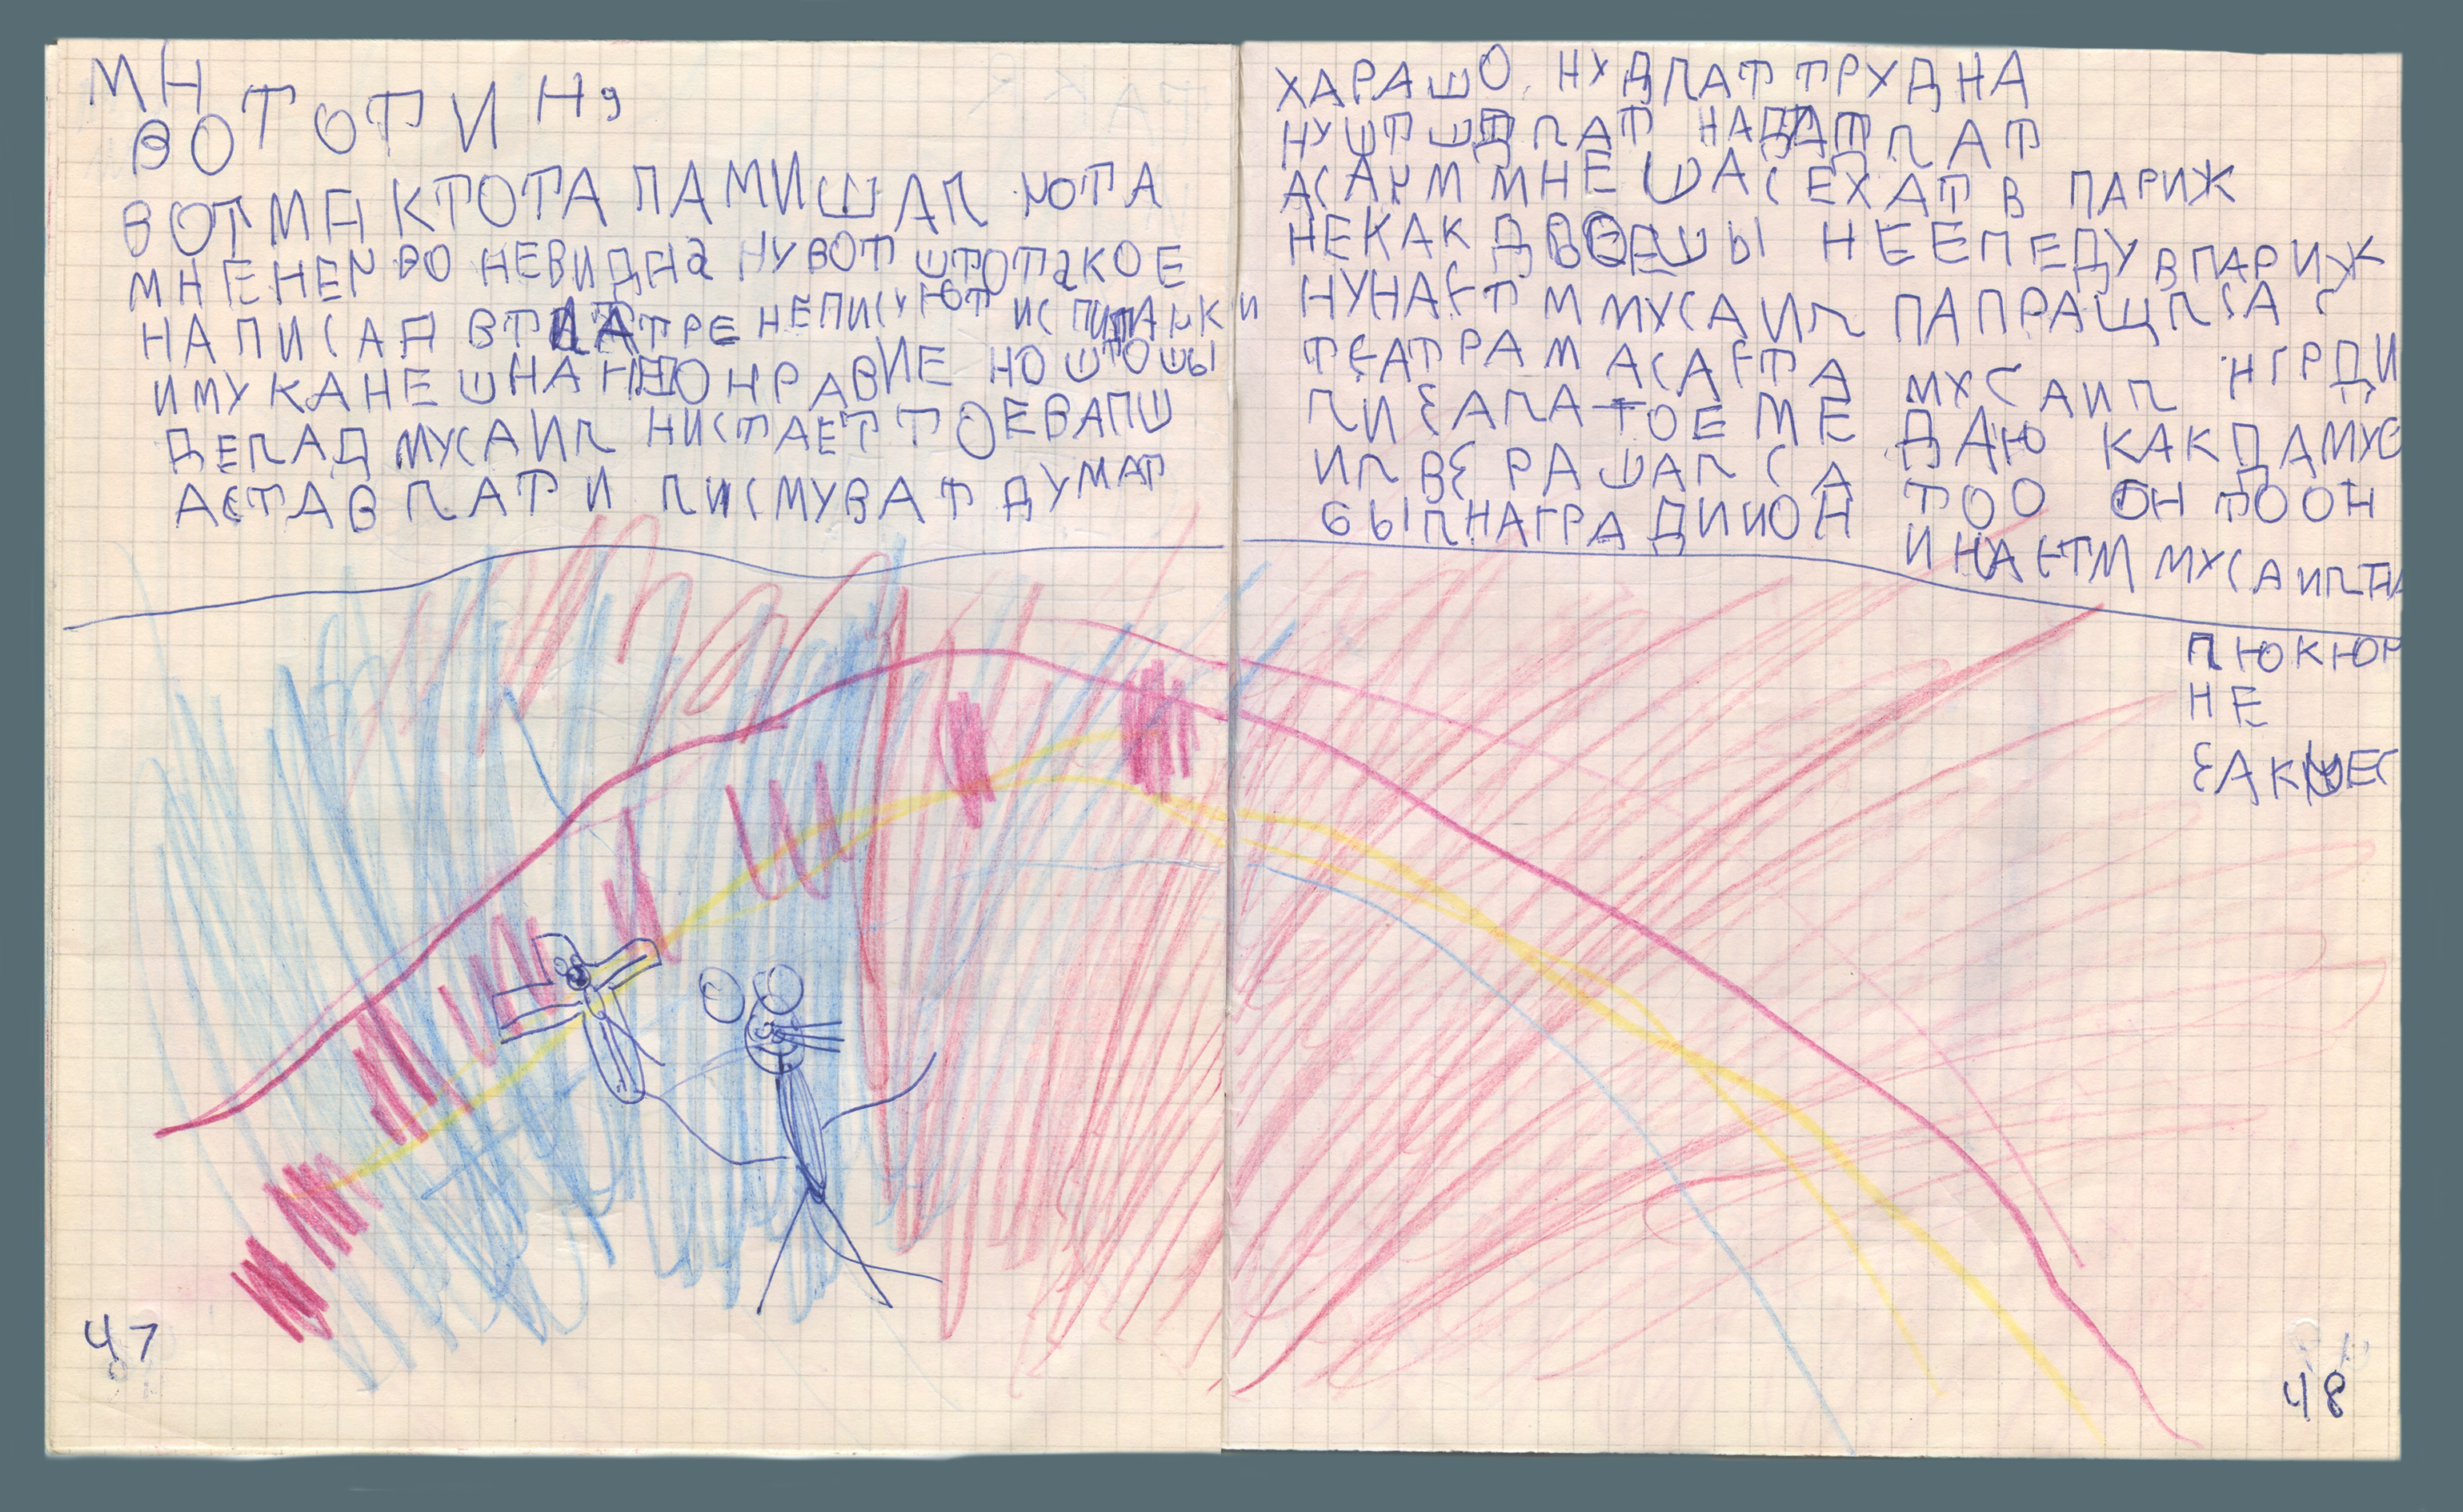 МН
ВОТ ОТ И Н,
ВОТ МА КТОТА ПАМИШАЛ НОТА
МНЕ НЕРВО НЕВИДНА НУ ВОТ ШТО ТАКОЕ
НАПИСАД В ТЕАТРЕ НЕПИСУЮТ ИСПИТАНКИ
ИМУ КАНЕШНА НЕОНРАВИЕ НО ШТОШЫ
ДЕЛАД МУСАИЛ НИСТАЕТ ТОЕВАПШ
АСТАВЛАТ И ПИСМУВАТ ДУМАТ
47
ХАРАШО. НУДЛАТ ТРУДНА
НУ ШТ Ш ДЛАТ НАДА ДЛАТ
АСАУМ МНЕ ШАС ЕХАТ В ПАРИЖ
НЕКАК ШЫ НЕЕПЕДУ В ПАРИЖ
НУ НАЕТМ МУСАИЛ ПАПРАЩЛСА С
ТЕАТРАМ АСАЕТА МУСАИЛ НГРДИ
ЛИ ЗАПАТОЕ МЕ ДАЮ КАК ДАМУС
ИЛ ВЗРАШАЛСА ТОО ОН ТООН
БЫЛ НАГРАДИИОН И НАЕТМ МУСАИЛ ТА
ЛЮКЮР
НЕ
ЗАКШЕГ
48